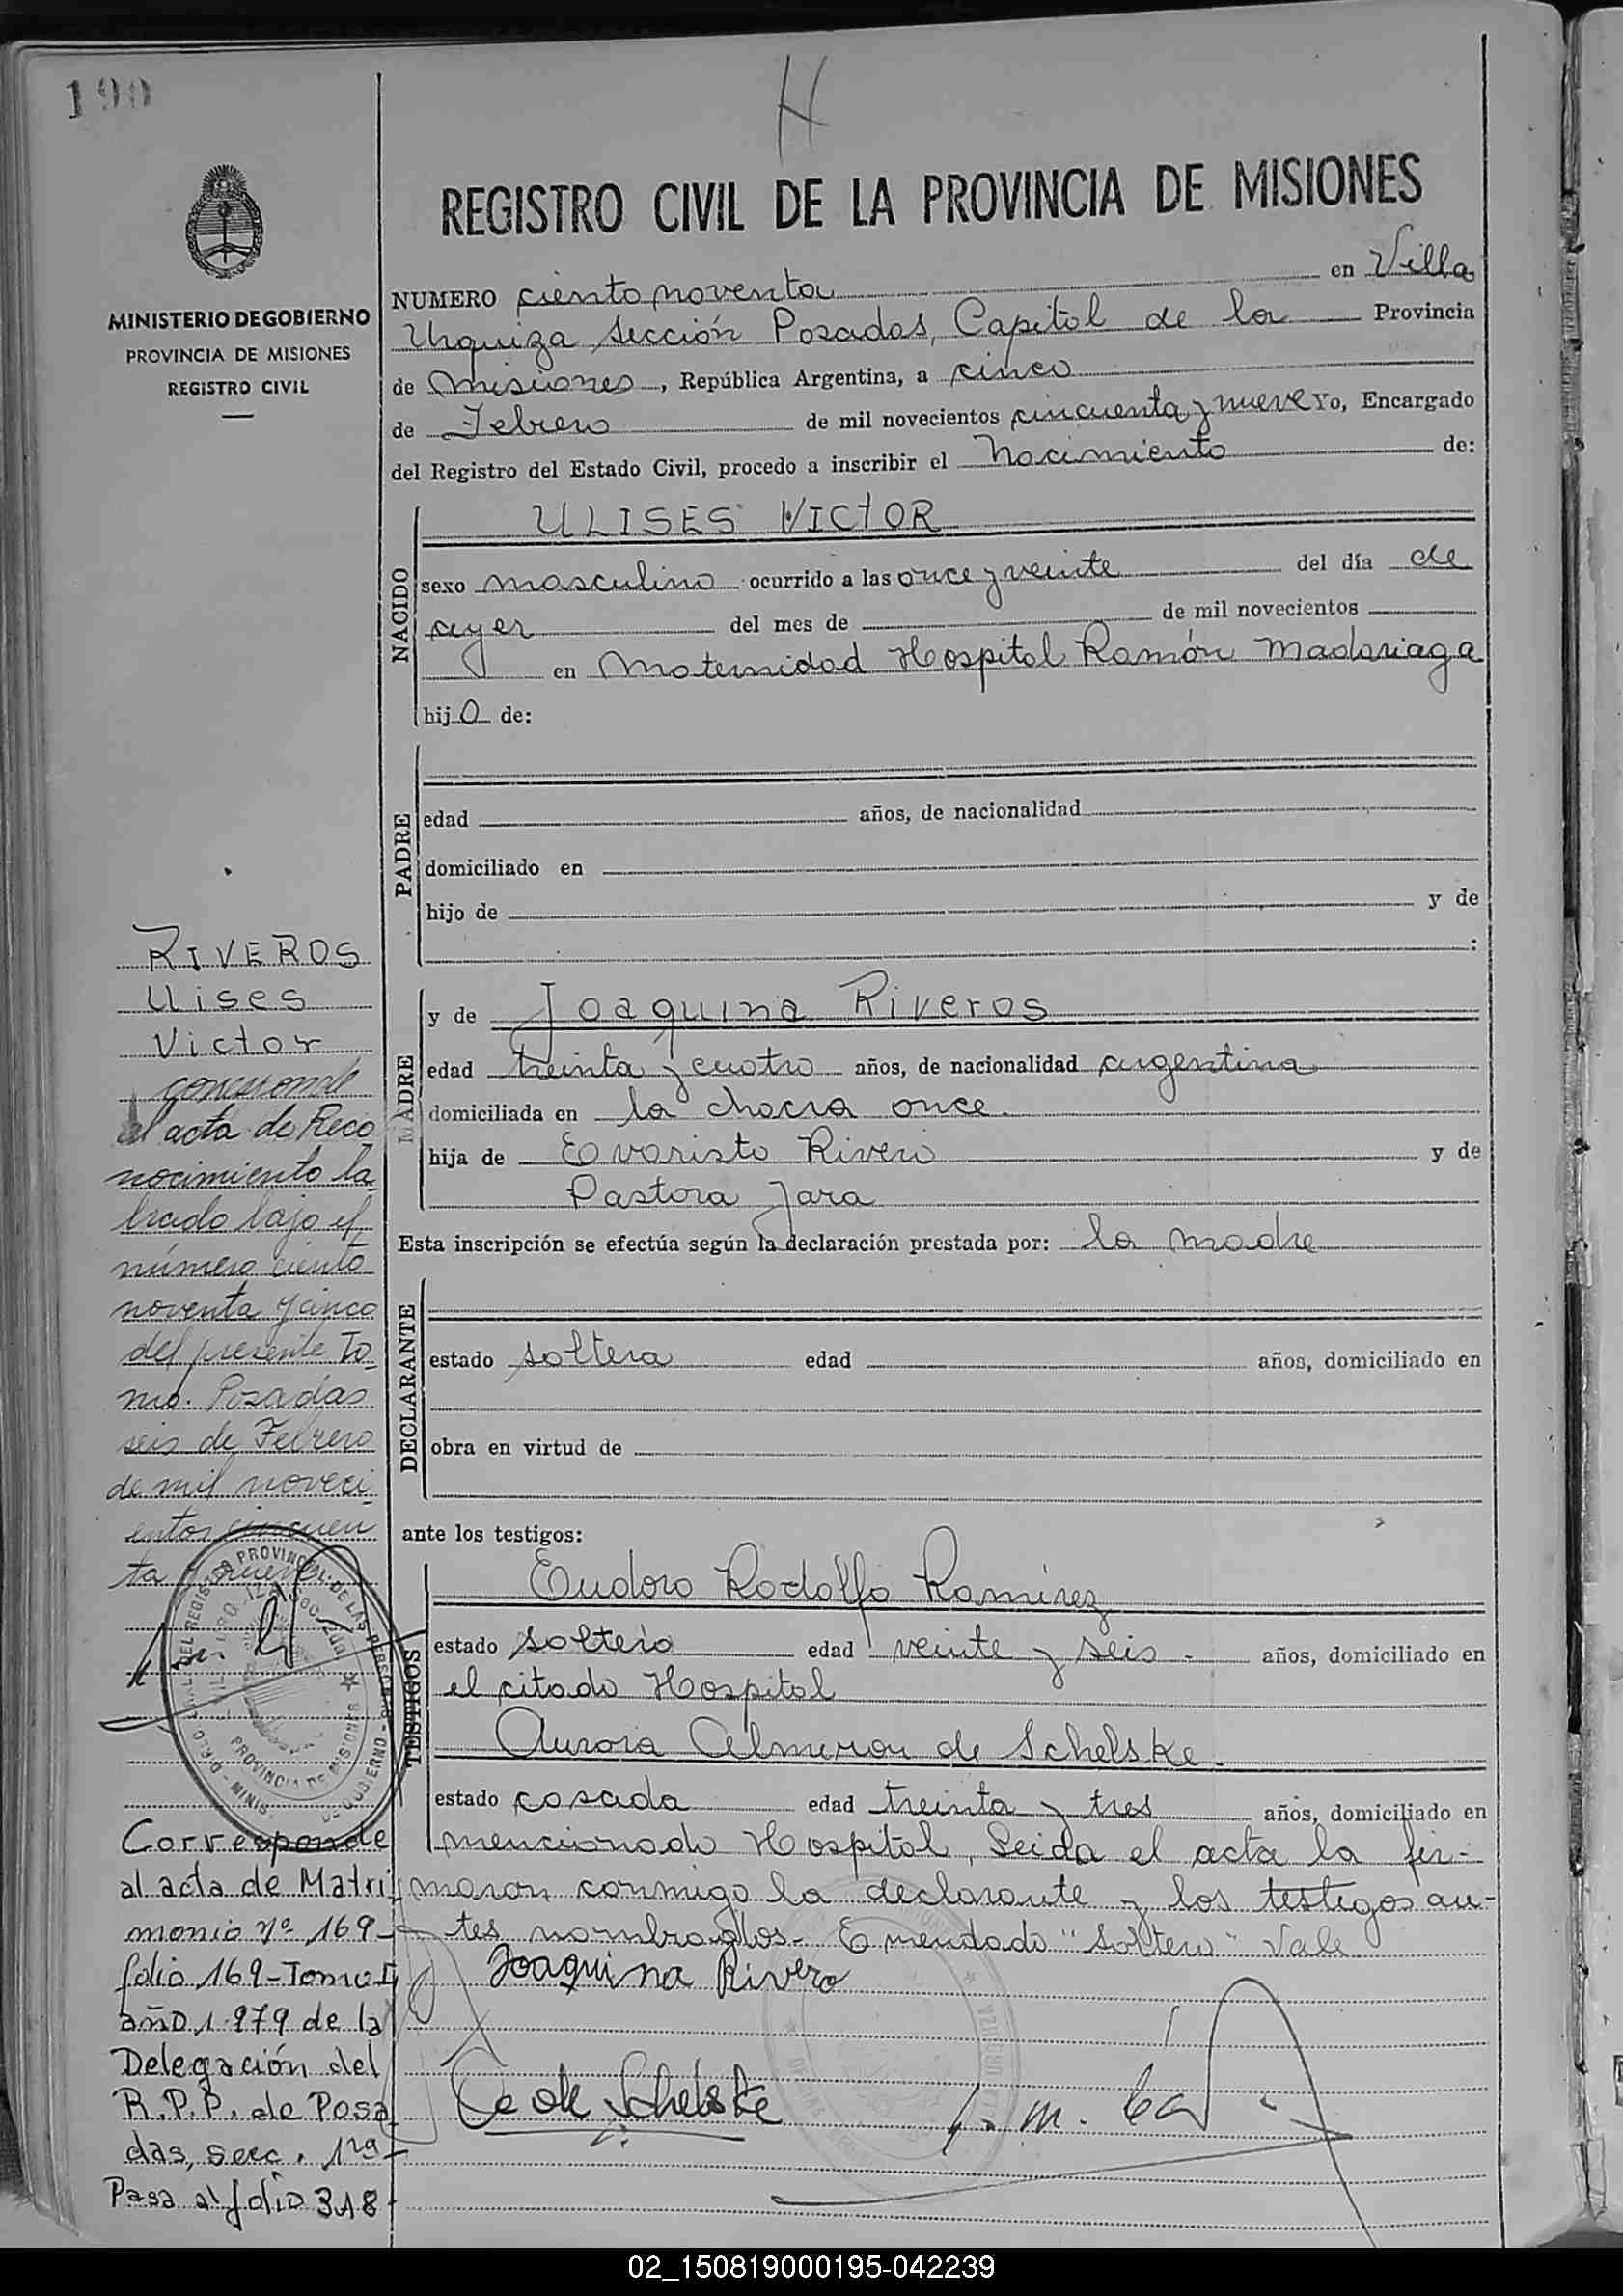 190
H
MINISTERIO DE GOBIERNO
PROVINCIA DE MISIONES
REGISTRO CIVIL
REGISTRO CIVIL DE LA PROVINCIA DE MISIONES
NUMERO ciento noventa en Villa
Urquiza Sección Posadas, Capital de la Provincia
de Misiones, República Argentina, a cinco
de Febrero de mil novecientos cincuenta y nueve Yo, Encargado
del Registro del Estado Civil, procedo a inscribir el Nacimiento de:
NACIDO
ULISES VICTOR
sexo masculino ocurrido a las once y veinte del día de
ayer del mes de de mil novecientos
en Maternidad Hospital Ramón Madariaga
hijo de:
PADRE
edad años, de nacionalidad
domiciliado en
hijo de y de
:
MADRE
y de Joaquina Riveros
edad treinta y cuatro años, de nacionalidad argentina
domiciliada en la chacra once.
hija de Evaristo Rivero y de
Pastora Jara
Esta inscripción se efectúa según la declaración prestada por: la madre
DECLARANTE
estado soltera edad años, domiciliado en
obra en virtud de
ante los testigos:
TESTIGOS
Eudoro Rodolfo Ramirez
estado soltero edad veinte y seis - años, domiciliado en
el citado Hospital
Aurora Almiron de Schelske
estado casada edad treinta y tres años, domiciliado en
mencionado Hospital, Leida el acta la fir-
maron conmigo la declarante y los testigos an-
tes nombrados.- Emendado "soltero" Vale
Joaquina Rivero
de Schelske
RIVEROS
Ulises
Victor
corresponde
al acta de Reco
nocimiento la
brado bajo el
número ciento
noventa y cinco
del presente To
mo. Posadas
seis de Febrero
de mil noveci
entos cincuen
ta y nueve
PROVINCIA DE MISIONES
Corresponde
al acta de Matri
monio Nº 169
folio 169-Tomo I
año 1.979 de la
Delegación del
R.P.P. de Posa
das, secc. 1ra
Pasa al folio 318
02_150819000195-042239